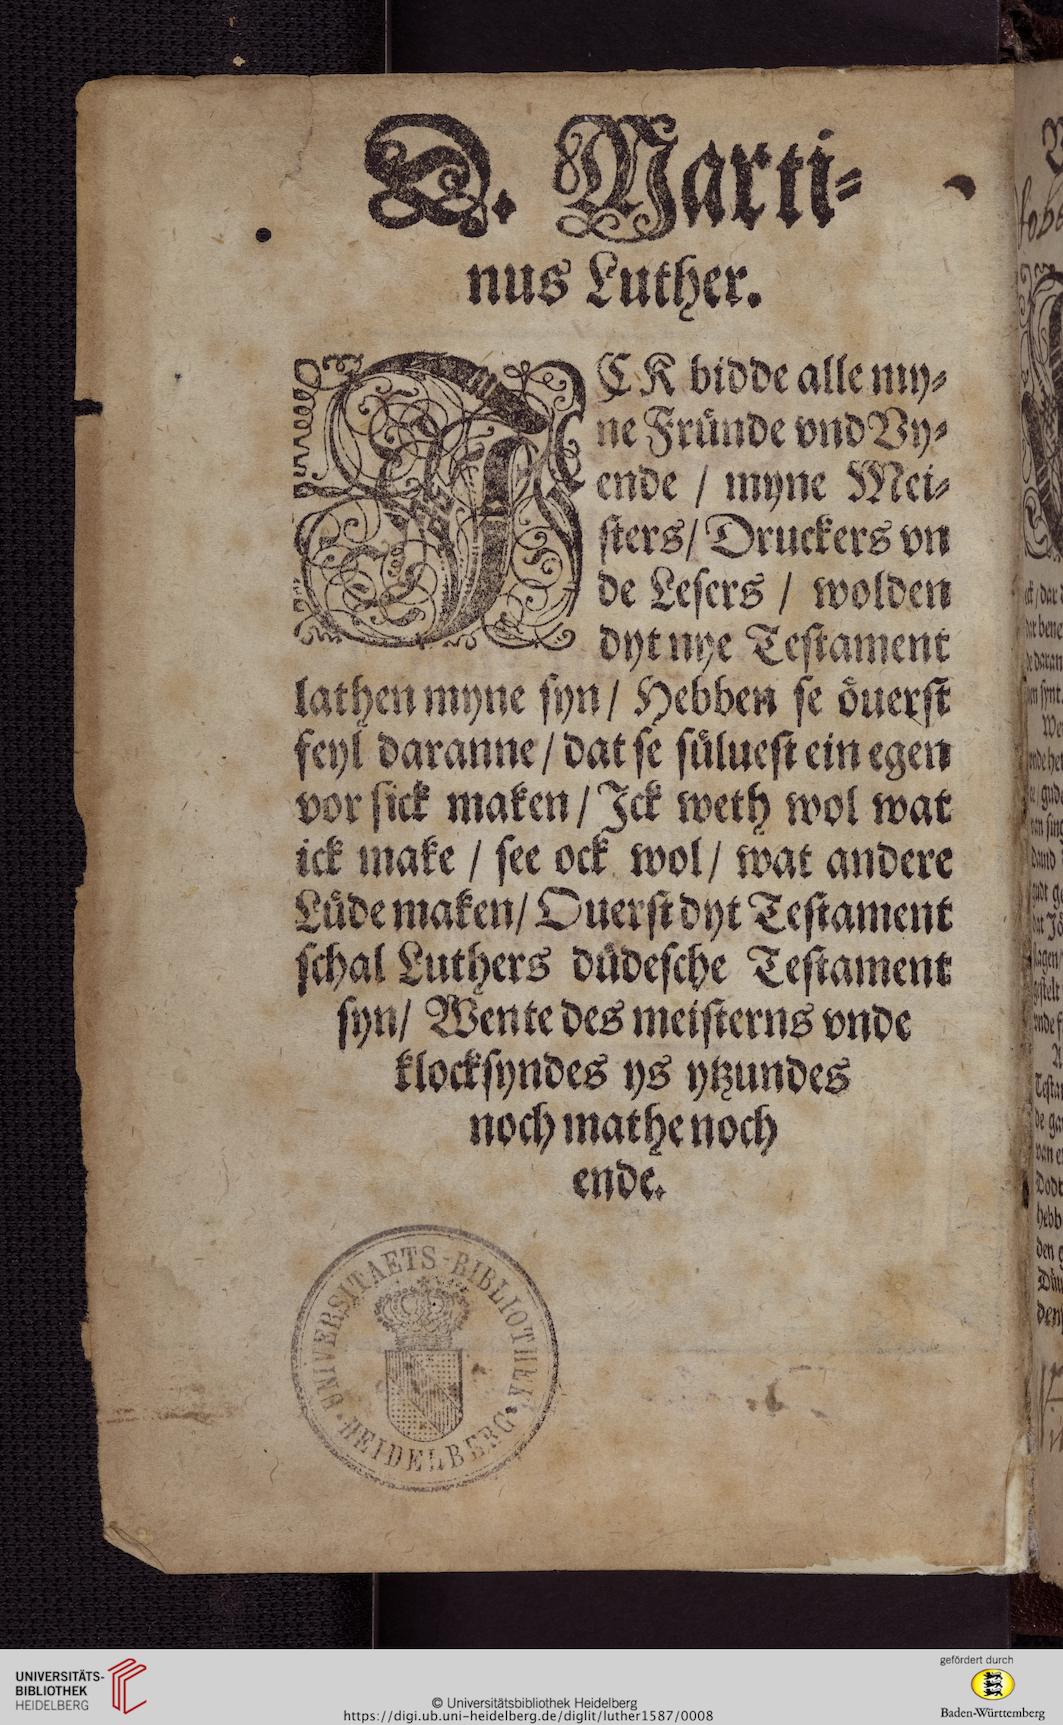 D. Marti-
nus Luther.
ICK bidde alle my-
ne Fründe vnd Vy-
ende / myne Mei-
sters / Druckers vn
de Lesers / wolden
dyt nye Testament
lathen myne syn / Hebben se öuerst
feyl daranne / dat se süluest ein egen
vor sick maken / Jck weth wol wat
ick make / see ock wol / wat andere
Lüde maken / Ouerst dyt Testament
schal Luthers düdesche Testament
syn / Wente des meisterns vnde
klocksyndes ys ytzundes
noch mathe noch
ende.
UNIVERSITAETS-BIBLIOTHEK
HEIDELBERG
UNIVERSITÄTS-
BIBLIOTHEK
HEIDELBERG
© Universitätsbibliothek Heidelberg
https://digi.ub.uni-heidelberg.de/diglit/luther1587/0008
gefördert durch
Baden-Württemberg